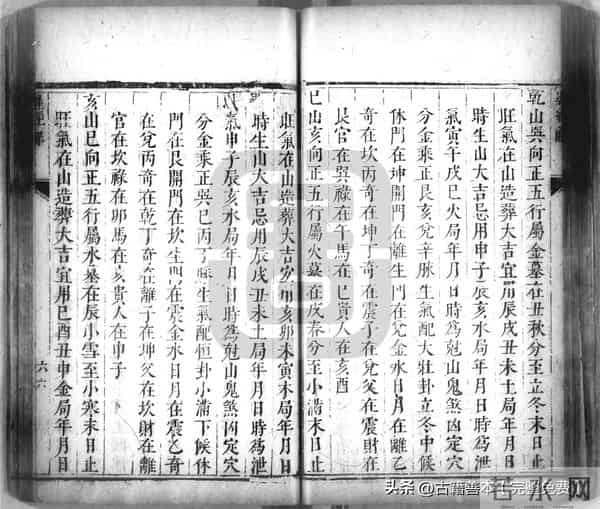 乾山巽向正五行屬金墓在丑秋分至立冬末日止
旺氣在山造葬大吉宜用辰戌丑未土局年月日
時生山大吉忌用申子辰亥水局年月日時為泄
氣寅午戌巳火局年月日時為尅山鬼煞凶定穴
分金乘正艮亥兌辛脉生氣配大壯卦立冬中候
休門在坤開門在離生門在兌金水日月在離乙
奇在坎丙奇在坤丁奇在震子在巽父在震財在
艮官在巽祿在午馬在巳貴人在亥酉
巳山亥向正五行屬火墓在戌春分至小滿末日止
旺氣在山造葬大吉宜用亥卯未寅木局年月日
時生山大吉忌用辰戌丑未土局年月日時為泄
氣申子辰亥水局年月日時為尅山鬼煞凶定穴
分金乘正巽巳丙丁脉生氣配恒卦小滿下候休
門在艮開門在坎生門在震金水日月在震乙奇
在兌丙奇在乾丁奇在離子在坤父在坎財在離
官在坎祿在卯馬在亥貴人在申子
亥山巳向正五行屬水墓在辰小雪至小寒末日止
旺氣在山造葬大吉宜用巳酉丑申金局年月日
六六
頭条 @古籍善本十完整免费